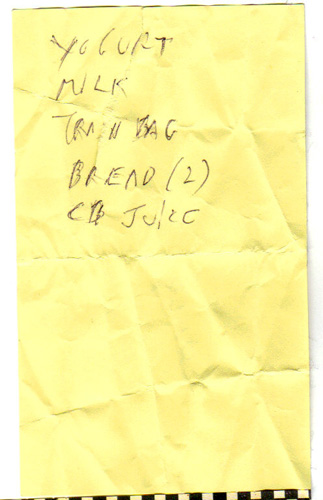 YOGURT
MILK
TRASH BAG
BREAD (2)
CB JUICE